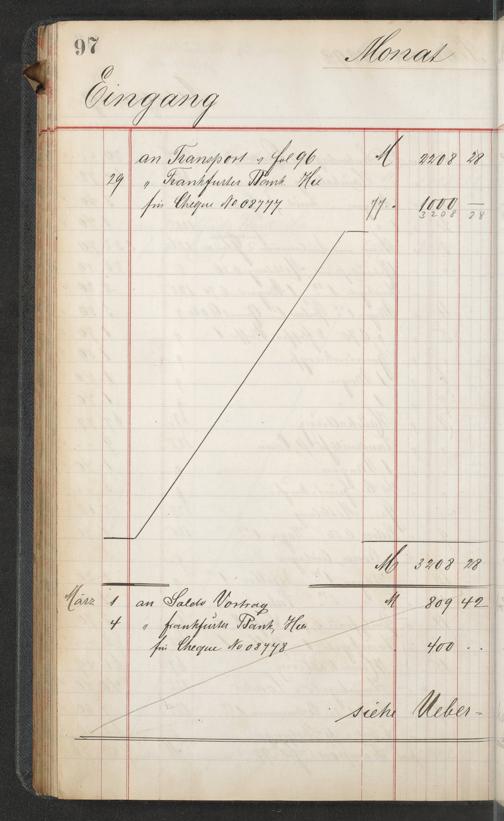 97
Monat
Eingang
an Transport v fol 96 M 2208 28
29 " Frankfurter Bank Hie
für Cheque No 08777 77. 1000 —
3208 28
M 3208 28
März 1 an Saldo Vortrag M 809 42
4 " Frankfurter Bank, Hie
für Cheque No 08778 . 400 . .
siehe Ueber-